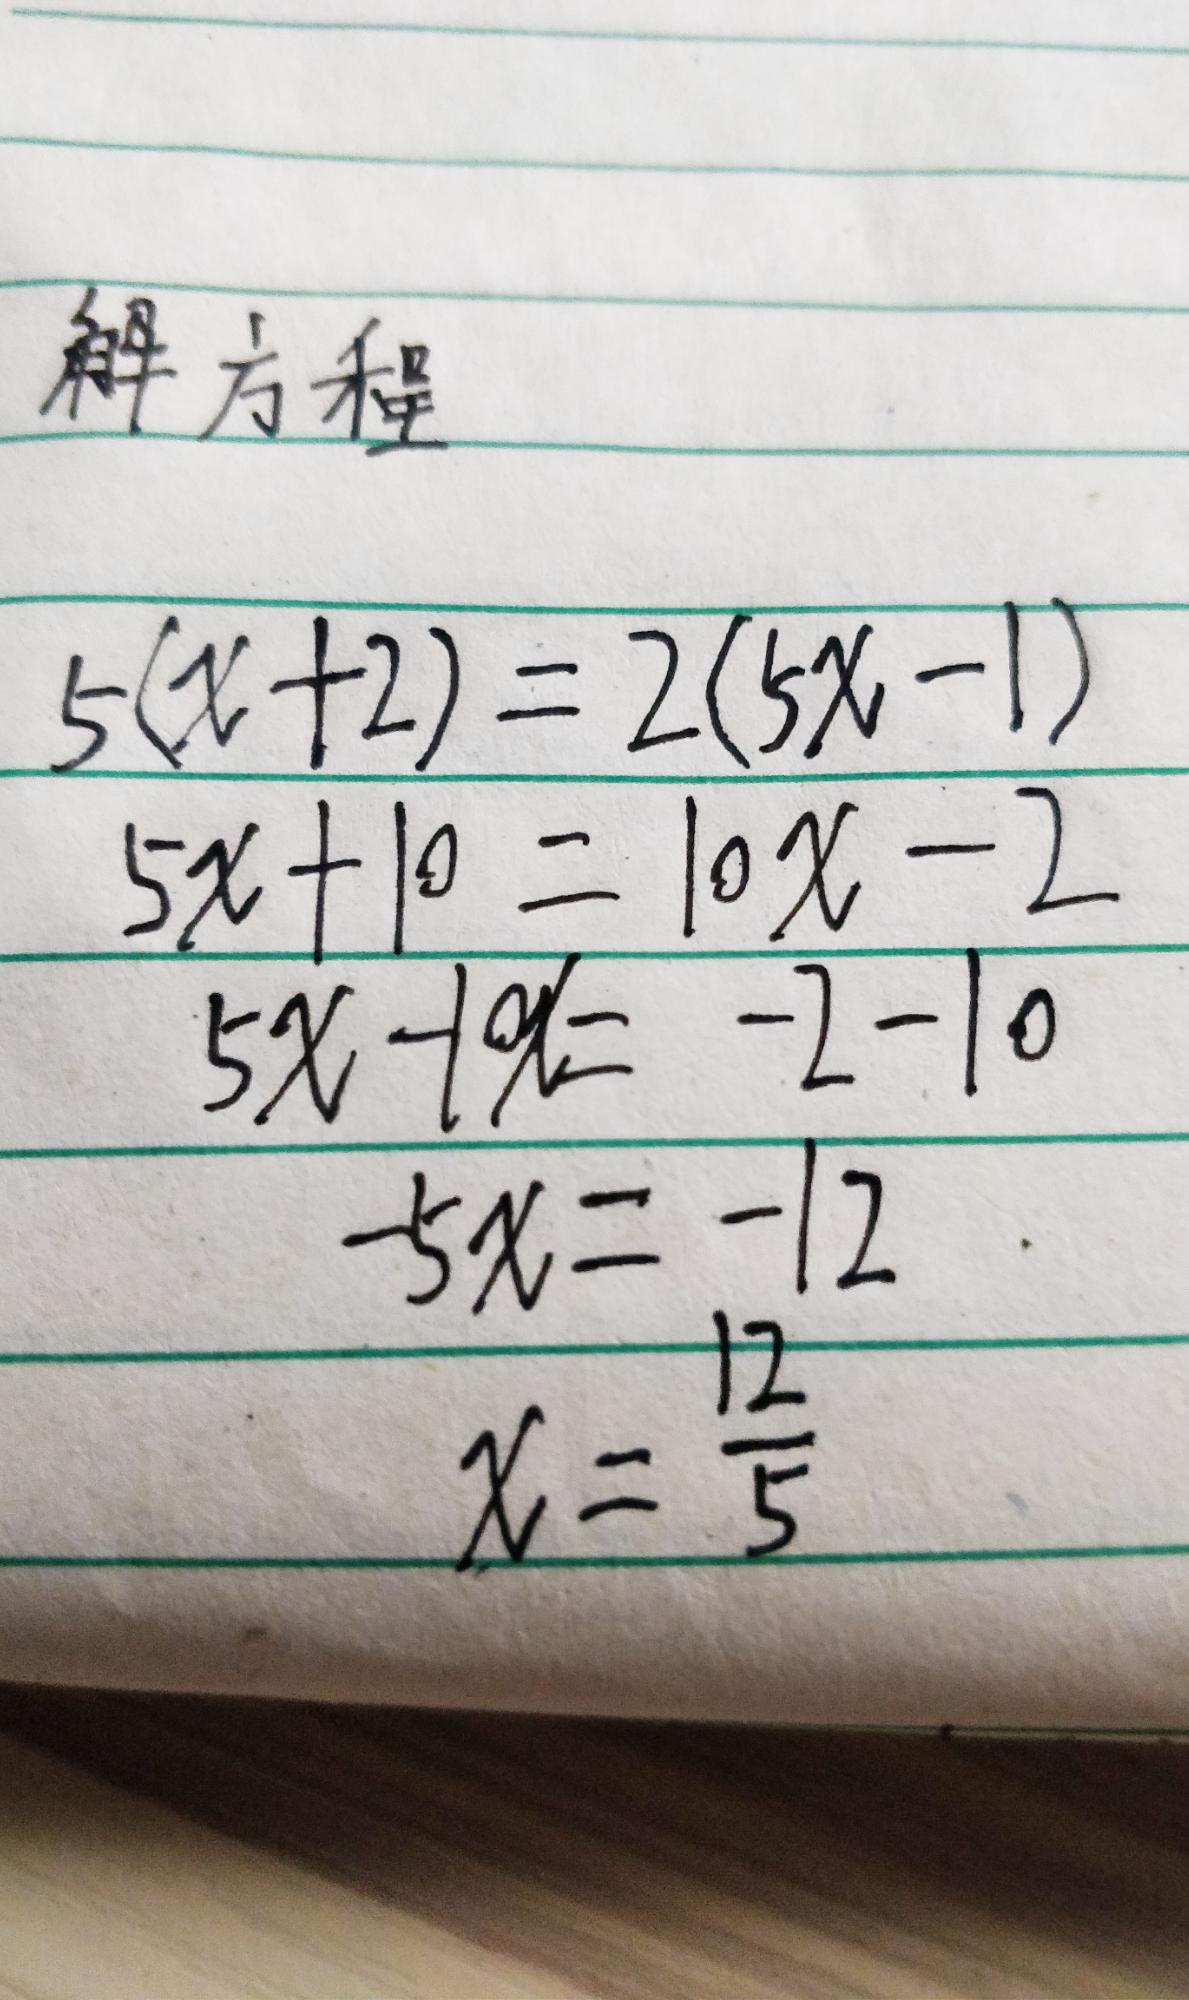 解方程
5(x+2)=2(5x-1)
5x+10=10x-2
5x-10x=-2-10
-5x=-12
x=12/5